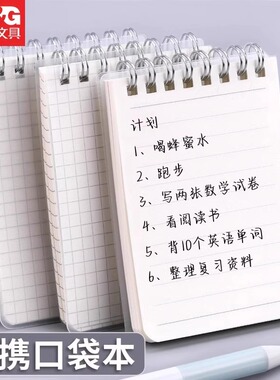 G
文具
计划
1、喝蜂蜜水
2、跑步
3、写两张数学试卷
4、看阅读书
5、背10个英语单词
6、整理复习资料
携口袋本